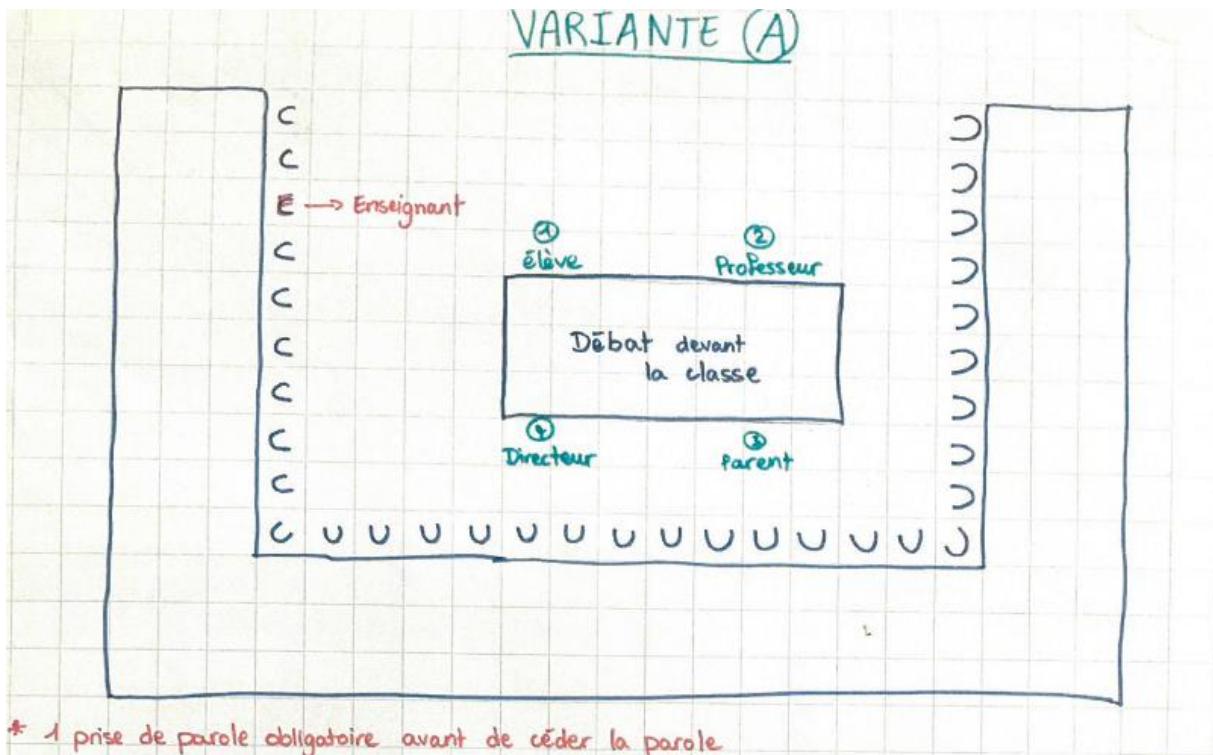 VARIANTE (A)
E → Enseignant
① élève
② Professeur
Débat devant
la classe
④ Directeur
③ Parent
* 1 prise de parole obligatoire avant de céder la parole